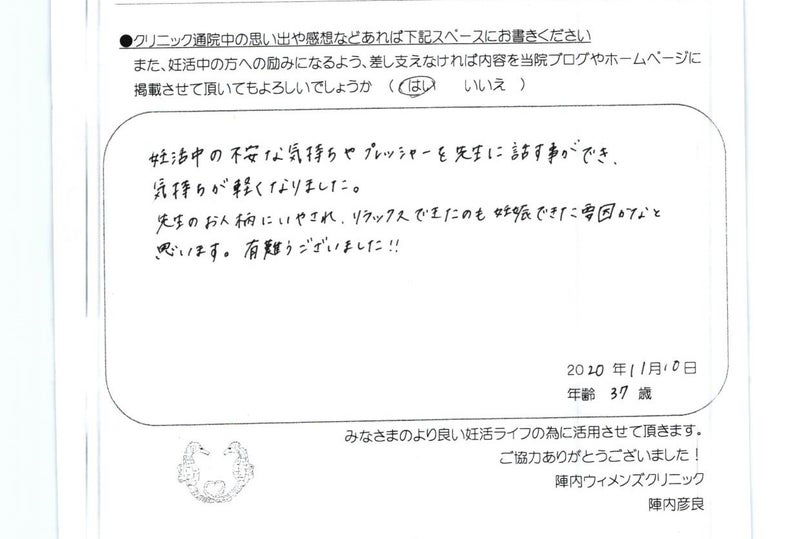 ●クリニック通院中の思い出や感想などあれば下記スペースにお書きください
また、妊活中の方への励みになるよう、差し支えなければ内容を当院ブログやホームページに
掲載させて頂いてもよろしいでしょうか （ はい　いいえ ）
妊活中の不安な気持ちやプレッシャーを先生に話す事ができ、
気持ちが軽くなりました。
先生のお人柄にいやされ、リラックスできたのも妊娠できた要因かなと
思います。有難うございました!!
2020年11月10日
年齢 37 歳
みなさまのより良い妊活ライフの為に活用させて頂きます。
ご協力ありがとうございました！
陣内ウィメンズクリニック
陣内彦良